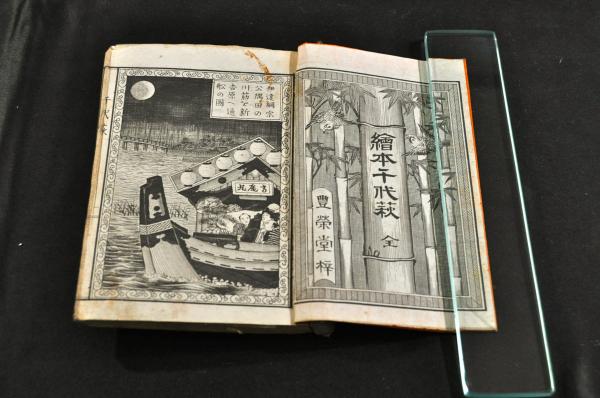 繪本千代萩 全
豐榮堂梓
伊達綱宗
公隅田の
川筋を新
吉原へ通
舩の圖
千代萩